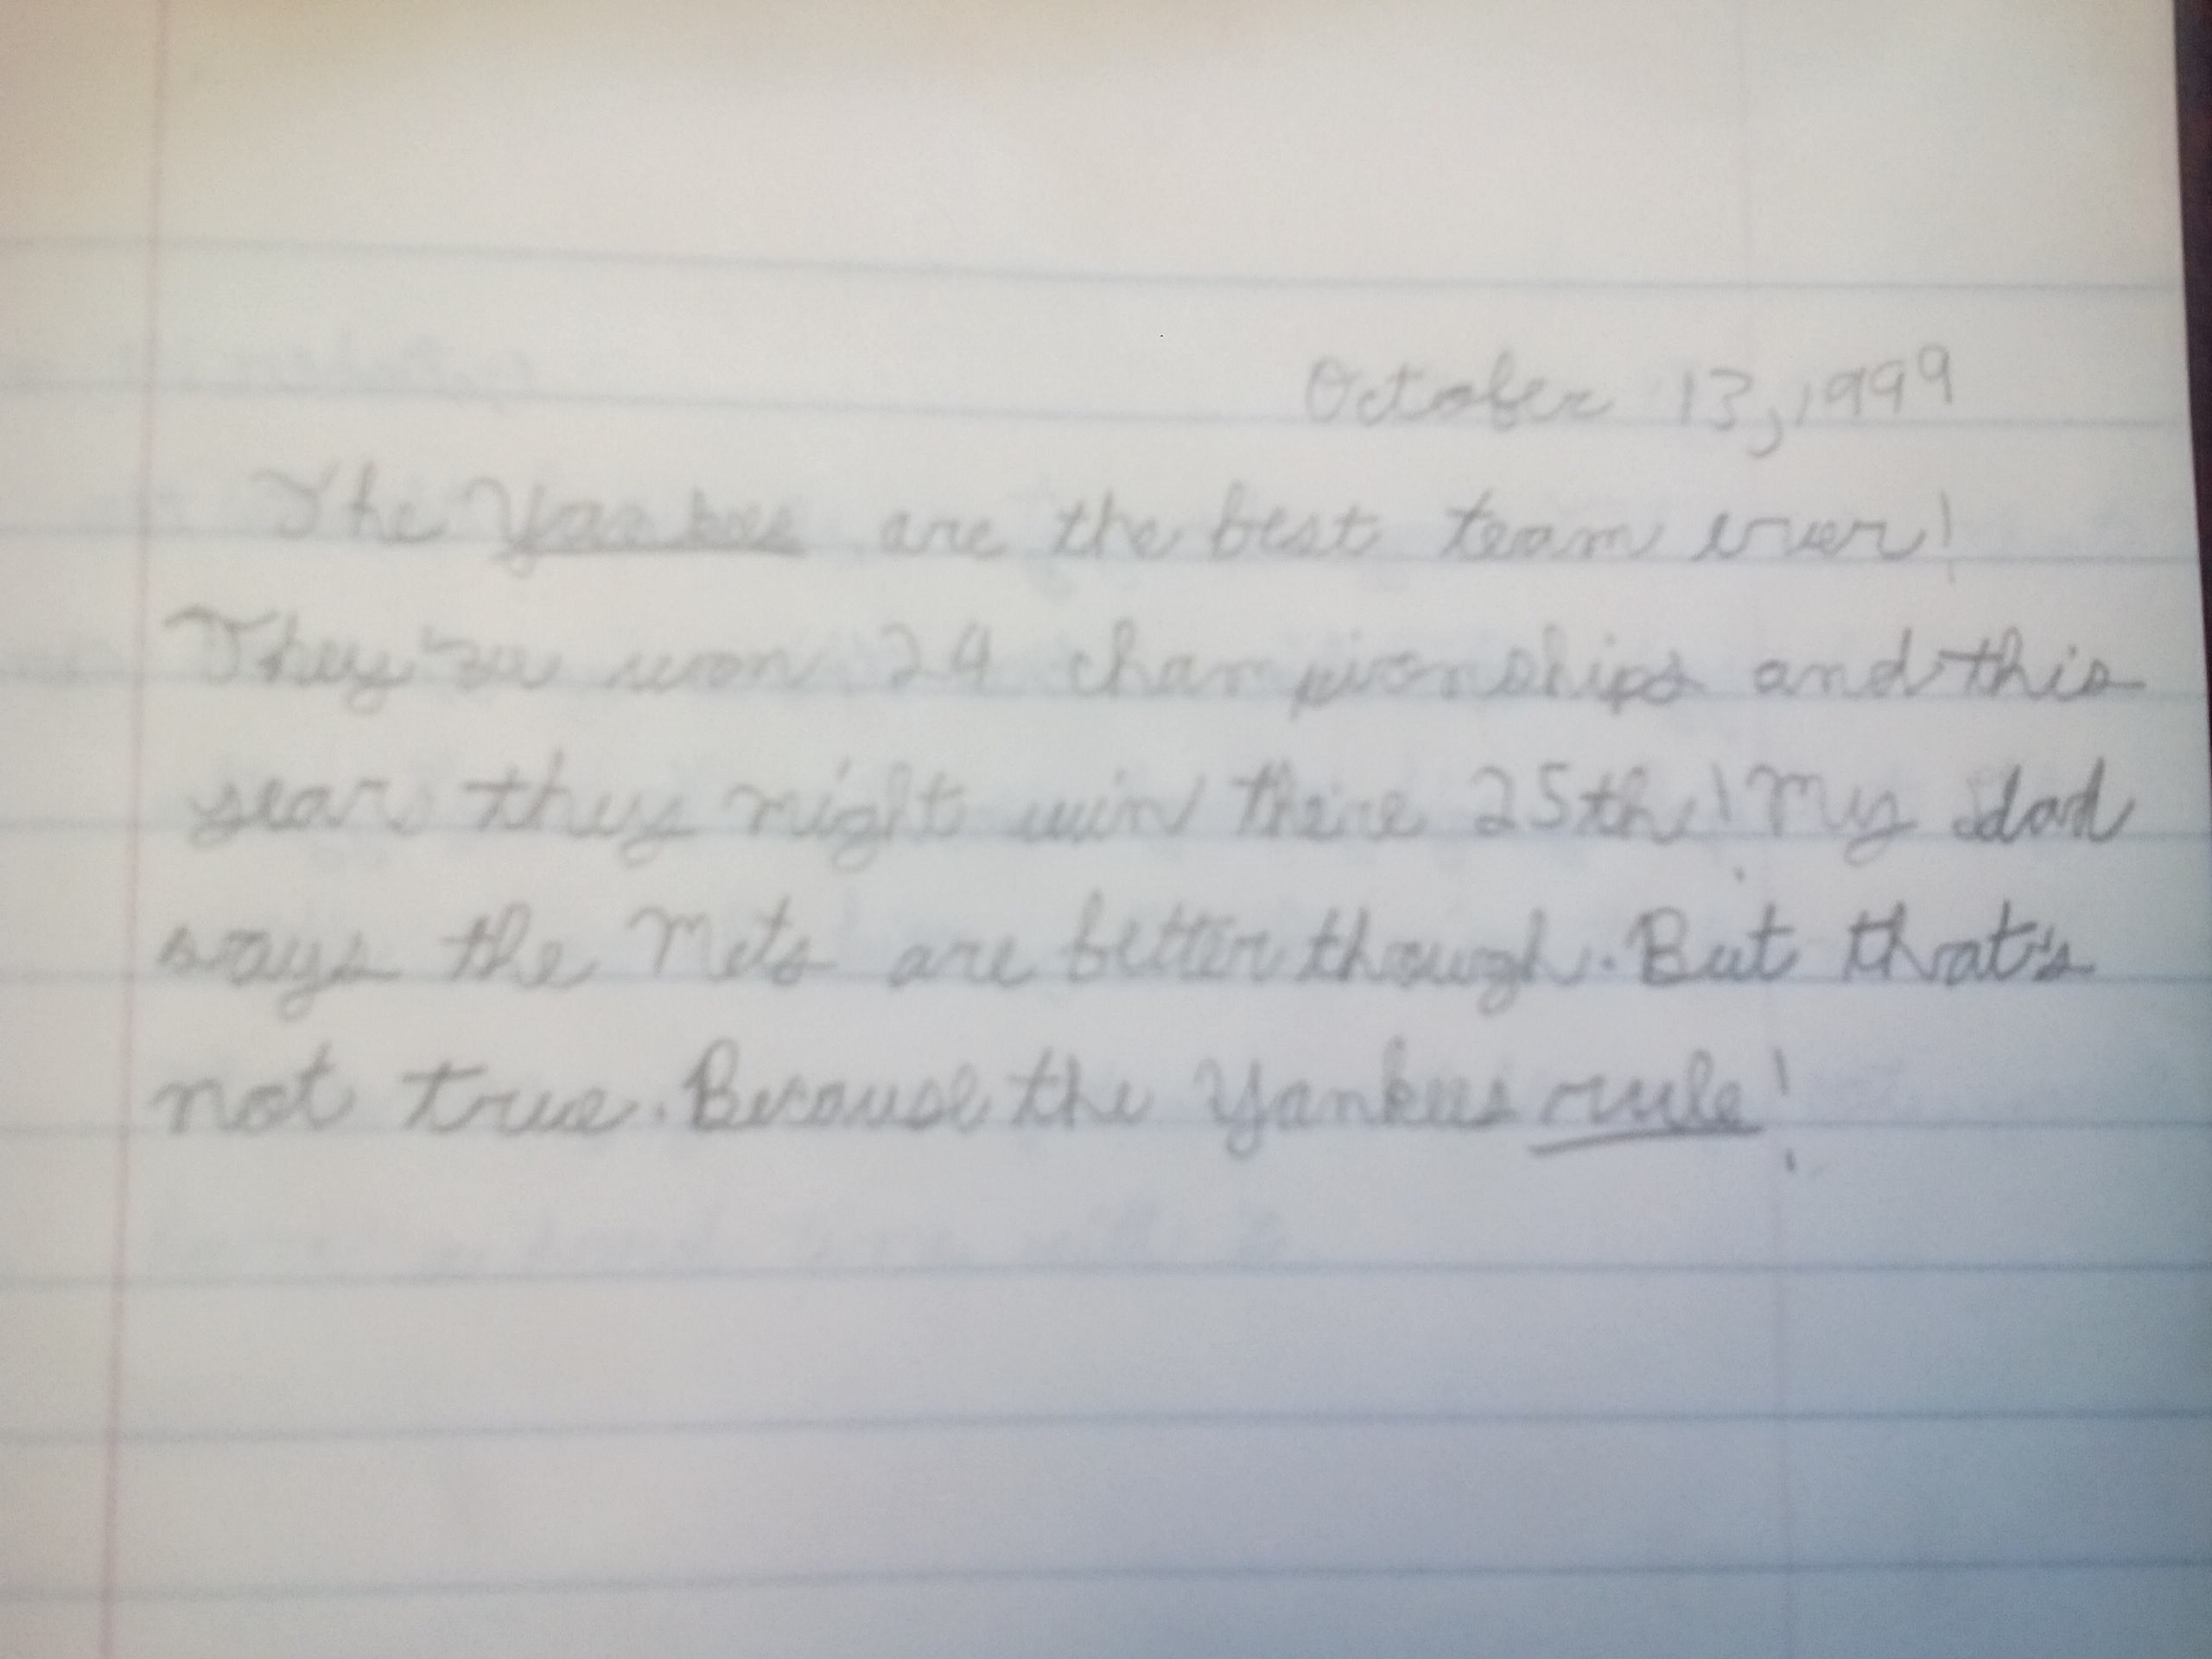 October 13, 1999
The Yankees are the best team ever!
They've won 24 championships and this
year they might win there 25th! My dad
says the Mets are better though. But that's
not true. Because the Yankees rule!